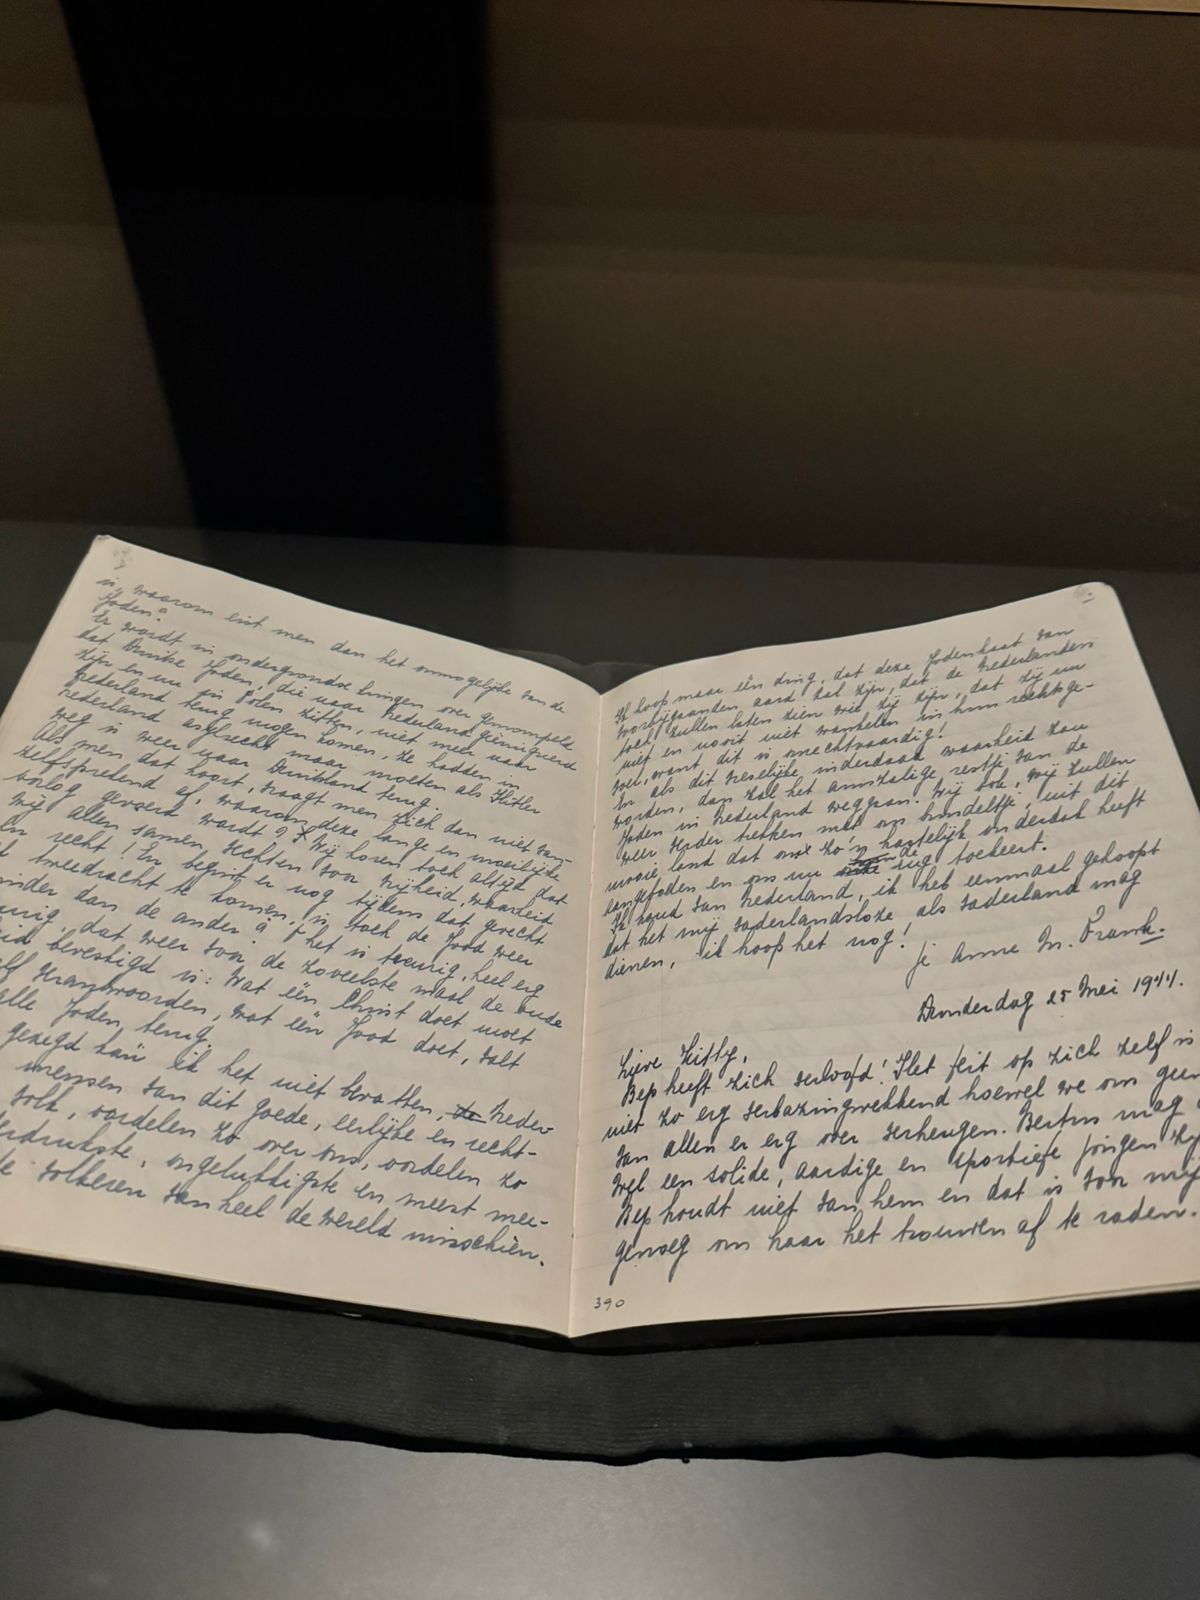 is, waarom eist men dan het onmogelijke van de
Joden?
Er wordt in ondergrondse kringen over gemompeld
dat Duitse Joden, die naar Nederland geëmigreerd
zijn en nu in Polen zitten, niet meer naar
Nederland terug mogen komen, ze hadden in
Nederland asylrecht maar moeten als Hitler
weg is weer naar Duitsland terug.
Als men dat hoort, vraagt men zich dan niet van-
zelfsprekend af, waarom deze lange en moeilijke
oorlog gevoerd wordt? Wij horen toch altijd dat
wij allen samen vechten voor vrijheid, waarheid
en recht! En begint er nog tijdens dat gevecht
tweedracht te komen, is toch de Jood weer
minder dan de ander? O het is treurig, heel erg
treurig, dat weer voor de zoveelste maal de oude
bevestigd is: Wat één Christ doet moet
zelf verantwoorden, wat één Jood doet, valt
alle Joden terug.
gezegd kan ik het niet bevatten, de Neder
mensen van dit goede, eerlijke en recht-
volk, oordelen zo over ons, oordelen zo
ongelukkigste en meest mee-
volkeren van heel de wereld misschien.
Ik hoop maar één ding, dat deze Jodenhaat van
voorbijgaanden aard zal zijn, dat de Nederlanders
toch zullen laten zien wie zij zijn, dat zij nu
niet en nooit niet wankelen in hun rechtsge-
voel, want dit is onrechtvaardig!
En als dit vreselijke inderdaad waarheid zou
worden, dan zal het armzalige restje van de
Joden in Nederland weggaan. Wij ook, wij zullen
weer verder trekken met ons bundeltje, uit dit
mooie land dat ons zo'n hartelijk onderdak heeft
aangeboden en ons nu de rug toekeert.
Ik houd van Nederland, ik heb eenmaal gehoopt
dat het mij vaderlandsloze als vaderland mag
dienen, ik hoop het nog!
je Anne M. Frank.
Donderdag 25 Mei 1944.
Lieve Kitty,
Bep heeft zich verloofd! Het feit op zich zelf is
niet zo erg verbazingwekkend hoewel we ons geen
van allen er erg over verheugen. Bertus mag
wel een solide, aardige en sportieve jongen
Bep houdt niet van hem en dat is voor mij
genoeg om haar het trouwen af te raden.
390